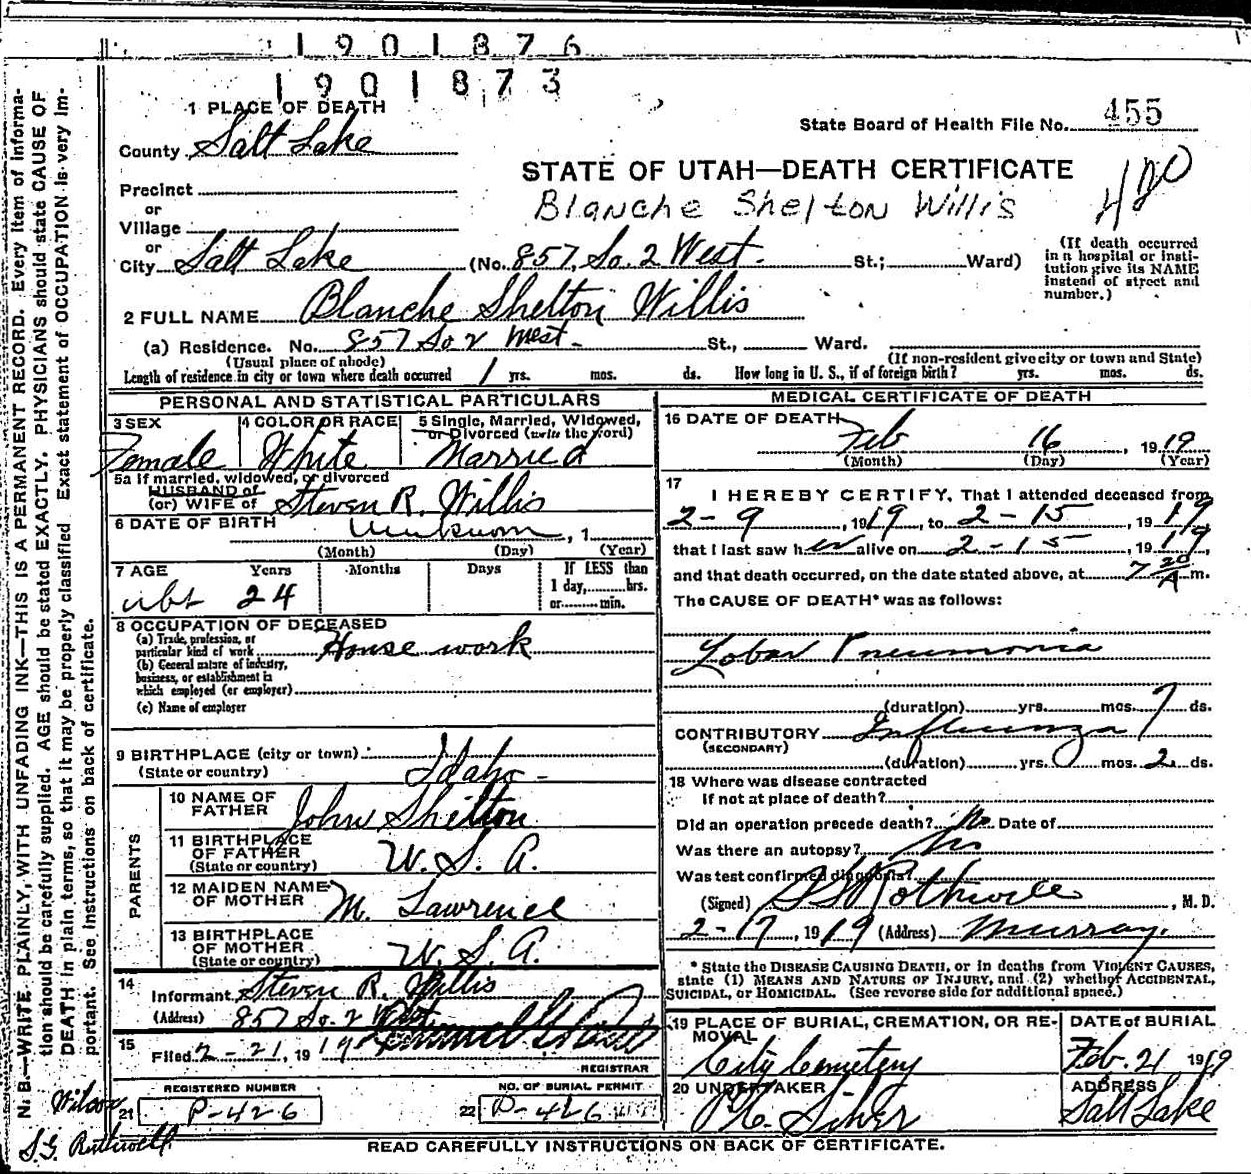 1901876
1901873
1 PLACE OF DEATH
State Board of Health File No. 455
County Salt Lake
STATE OF UTAH—DEATH CERTIFICATE
Precinct
Blanche Shelton Willis
or
Village
or
City Salt Lake (No. 857, So. 2 West. St.; Ward)
(If death occurred in a hospital or institution give its NAME instead of street and number.)
2 FULL NAME Blanche Shelton Willis
(a) Residence. No. 857 So 2 West. St., Ward.
(Usual place of abode) (If non-resident give city or town and State)
Length of residence in city or town where death occurred 1 yrs. mos. ds. How long in U. S., if of foreign birth? yrs. mos. ds.
PERSONAL AND STATISTICAL PARTICULARS
3 SEX 4 COLOR OR RACE 5 Single, Married, Widowed, or Divorced (write the word)
Female White Married
5a If married, widowed, or divorced
HUSBAND of
(or) WIFE of Steven R. Willis
6 DATE OF BIRTH Unknown, 1
(Month) (Day) (Year)
7 AGE Years Months Days If LESS than
1 day, hrs.
or min.
abt 24
8 OCCUPATION OF DECEASED
(a) Trade, profession, or
particular kind of work House work
(b) General nature of industry,
business, or establishment in
which employed (or employer)
(c) Name of employer
9 BIRTHPLACE (city or town)
(State or country) Idaho
PARENTS
10 NAME OF
FATHER John Shelton
11 BIRTHPLACE
OF FATHER
(State or country) U. S. A.
12 MAIDEN NAME
OF MOTHER M. Lawrence
13 BIRTHPLACE
OF MOTHER
(State or country) U. S. A.
14
Informant Steven R. Willis
(Address) 857 So. 2 West
15
Filed 2-21, 1919
REGISTRAR
REGISTERED NUMBER
21 P-426
NO. OF BURIAL PERMIT
22 P-426
MEDICAL CERTIFICATE OF DEATH
16 DATE OF DEATH
Feb 16, 1919
(Month) (Day) (Year)
17
I HEREBY CERTIFY, That I attended deceased from
2-9, 1919, to 2-15, 1919
that I last saw her alive on 2-15, 1919,
and that death occurred, on the date stated above, at 7 20 A m.
The CAUSE OF DEATH* was as follows:
Lobar Pneumonia
(duration) yrs. mos. 7 ds.
CONTRIBUTORY Influenza
(SECONDARY)
(duration) yrs. mos. 2 ds.
18 Where was disease contracted
If not at place of death?
Did an operation precede death? No Date of
Was there an autopsy? No
Was test confirmed diagnosis?
(Signed) Rothwell, M. D.
2-17, 1919 (Address) Murray.
* State the DISEASE CAUSING DEATH, or in deaths from VIOLENT CAUSES,
state (1) MEANS AND NATURE OF INJURY, and (2) whether ACCIDENTAL,
SUICIDAL, or HOMICIDAL. (See reverse side for additional space.)
19 PLACE OF BURIAL, CREMATION, OR RE-
MOVAL
City Cemetery
DATE of BURIAL
Feb. 21 1919
20 UNDERTAKER
ADDRESS
Salt Lake
READ CAREFULLY INSTRUCTIONS ON BACK OF CERTIFICATE.
N. B.—WRITE PLAINLY, WITH UNFADING INK—THIS IS A PERMANENT RECORD. Every item of informa-
tion should be carefully supplied. AGE should be stated EXACTLY. PHYSICIANS should state CAUSE OF
DEATH in plain terms, so that it may be properly classified. Exact statement of OCCUPATION is very im-
portant. See instructions on back of certificate.
Wilson
S.G. Rothwell